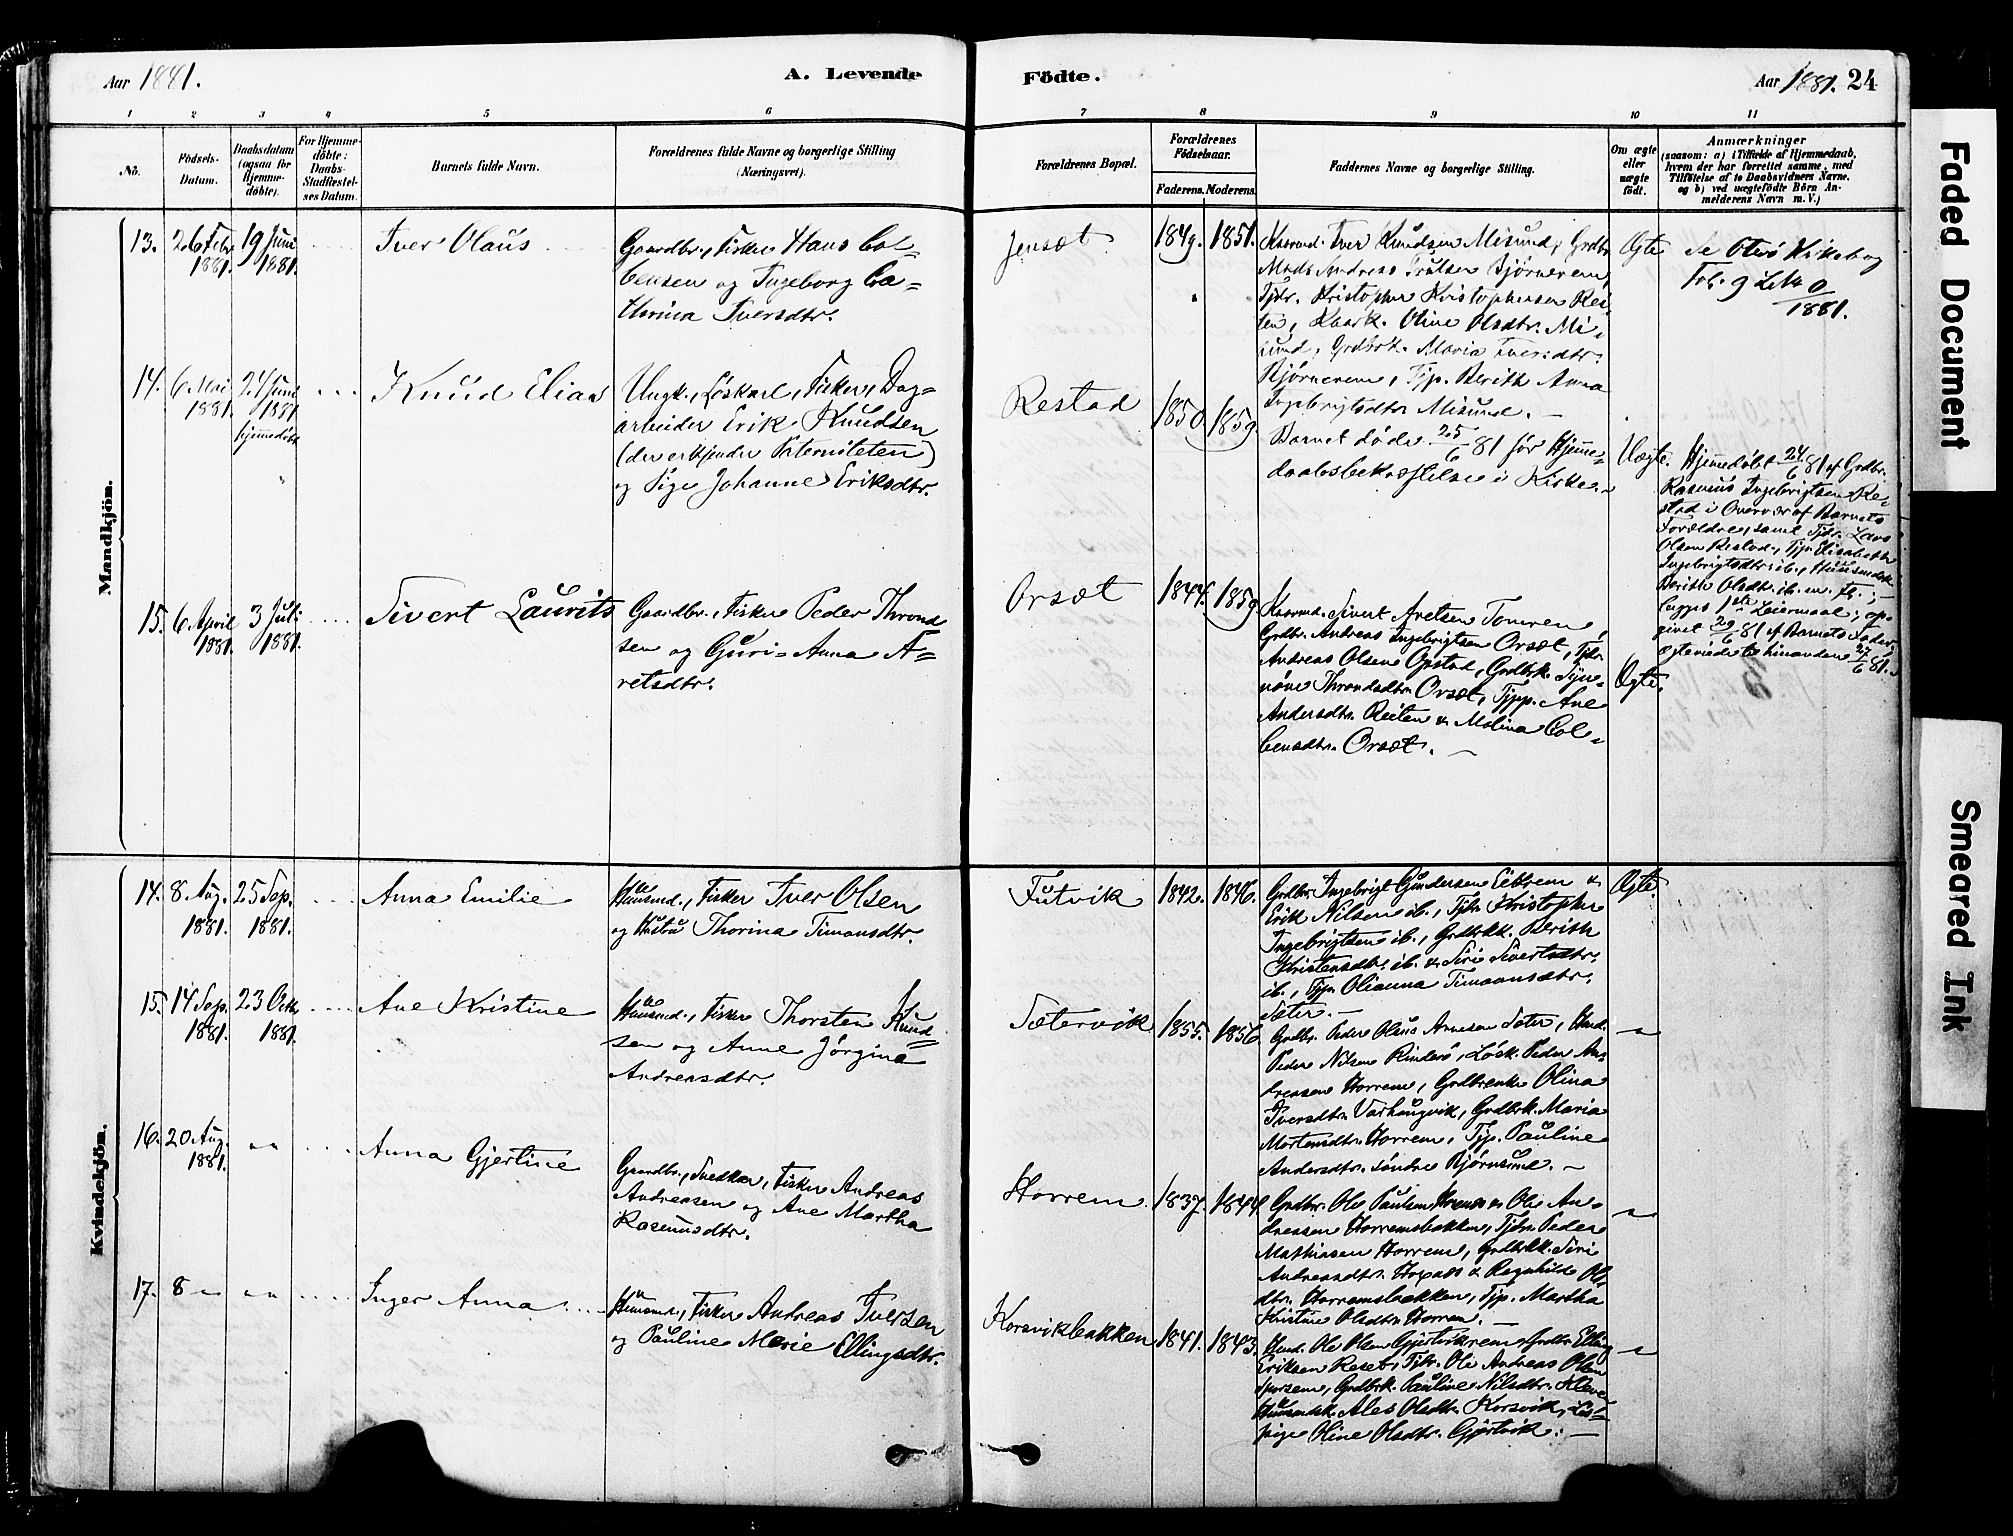 Aar 1881.
A. Levende
Födte.
Aar 1881. 24
1 2 3 4 5 6 7 8 9 10 11
No.
Födsels-
Datum.
Daabsdatum
(ogsaa for
Hjemme-
döbte).
For Hjemme-
döbte:
Daabs-
Stadfæstel-
ses Datum.
Barnets fulde Navn.
Forældrenes fulde Navne og borgerlige Stilling
(Næringsvei).
Forældrenes Bopæl.
Forældrenes
Födselsaar.
Faderens. Moderens.
Faddernes Navne og borgerlige Stilling.
Om ægte
eller
uægte
födt.
Anmærkninger
(saasom: a) i Tilfælde af Hjemmedaab,
hvem der har forrettet samme, med
Tilföielse af to Daabsvidners Navne,
og b) ved uægtefödte Börn An-
melderens Navn m. V.)
Mandkjön.
13. 26 Febr. 1881. 19 Juni 1881.
Iver Olaus
Gaardbr., Fisker Hans Col-
bensen og Ingeborg Ca-
thrina Iversdtr.
Jensæt 1849. 1851.
Kaarmd. Iver Knudsen Misund, Grdbr.
Mads Andreas Trulsen Bjørnerem,
Tjdr. Kristopher Kristophersen Rei-
ten, Kaark. Oline Olsdtr. Mi-
sund, Grdbrk. Maria Iversdtr.
Bjørnerem, Tjp. Berith Anna
Ingebrigtsdtr. Misund. —
Ægte
Se Oterö Kirkebog
Fol. 9
1881.
14. 6 Mai 1881. 24 Juni 1881 hjemmedöbt
Knud Elias
Ungk., Löskarl, Fisker, Dag-
arbeider Erik Knudsen
(der erkjender Paterniteten)
og Pige Johanne Eriksdtr.
Restad 1850. 1859.
Barnet døde 25/6 81 før Hjemme-
daabsbekræftelse i Kirke.
Uægte.
Hjemmedøbt 24/6 81 af Grdbr.
Rasmus Ingebrigtsen Re-
stad i Overvær af Barnets
Forældre, samt Tjdr. Lars
Olsen Restad, Tjp. Elisabeth
Ingebrigtsdtr. ib., Huusmdsk.
Berith Olsdtr. ib. m. fl.;
begges 1ste Leiermaal; op-
givet 29/6 81 af Barnets Fader,
ægteviede til hinanden 27/6 81.
15. 6 April 1881. 3 Juli 1881.
Sivert Laurits
Gaardbr., Fisker Peder Thrond-
sen og Guri-Anna A-
retsdtr.
Orsæt 1844. 1859.
Kaarmd. Sivert Aretsen Tomren,
Grdbr. Andreas Ingebrigtsen Orsæt, Tjdr.
Andreas Olsen Opstad, Grdbrk. Syn-
növe Throndsdtr. Orsæt, Tjpp. Ane
Andersdtr. Reiten & Molina Col-
bensdtr. Orsæt. —
Ægte.
Kvindekjön.
14. 8 Aug. 1881. 25 Sep. 1881.
Anna Emilie
Huusmd., Fisker Iver Olsen
og Hustru Thorina Timansdtr.
Futvik 1842. 1846.
Grdbr. Ingebrigt Gundersen Eikrem &
Erik Nilsen ib., Tjdr. Kristopher
Ingebrigtsen ib., Grdbrkk. Berith
Kristensdtr. ib. & Siri Sivertsdtr.
ib., Tjp. Olianna Timansdtr.
Sæter. —
Ægte.
15. 14 Sep. 1881. 23 Octb. 1881.
Ane Kristine
Huusmd., Fisker Thorsten Knud-
sen og Anne Jörgina
Andreasdtr.
Sætervik 1855. 1856.
Grdbr. Peder Olaus Arnesen Sæter, Hmd.
Peder Nilsen Rinderö, Løsk. Peder An-
dreasen Horrem, Grdbrenke Olina
Iversdtr. Varhaugvik, Grdbrk. Maria
Mortensdtr. Horrem, Tjp. Pauline
Andersdtr. söndre Bjørnsund. —
—
16. 20 Aug. 1881. " "
Anna Gjertine
Gaardbr., Snedker, Fisker Andreas
Andreasen og Ane Martha
Rasmusdtr.
Horrem 1837. 1844.
Grdbr. Ole Paulsen Horrem & Ole An-
dreasen Horremsbakken, Tjdr. Peder
Mathiasen Horrem, Grdbrkk. Siri
Andreasdtr. & Ragnhilde Ols-
dtr. Horremsbakken, Tjp. Martha
Kristine Olsdtr. Horrem. —
—
17. 8 " " "
Inger Anna
Huusmd., Fisker Andreas Iversen
og Pauline Marie Ellingsdtr.
Korsvikbakken 1841. 1843.
Hmd. Ole Olsen Gjøstvikrem, Grdbr. Elling
Eriksen Reset, Tjdr. Ole Andreas Olsen
Sporsem, Grdbrk. Pauline Nilsdtr. Kleve
Huusmdsk. Ales Olsdtr. Korsvik, Løs-
pige Oline Olsdtr. Gjøstvik. —
—
Faded Document
Smeared Ink